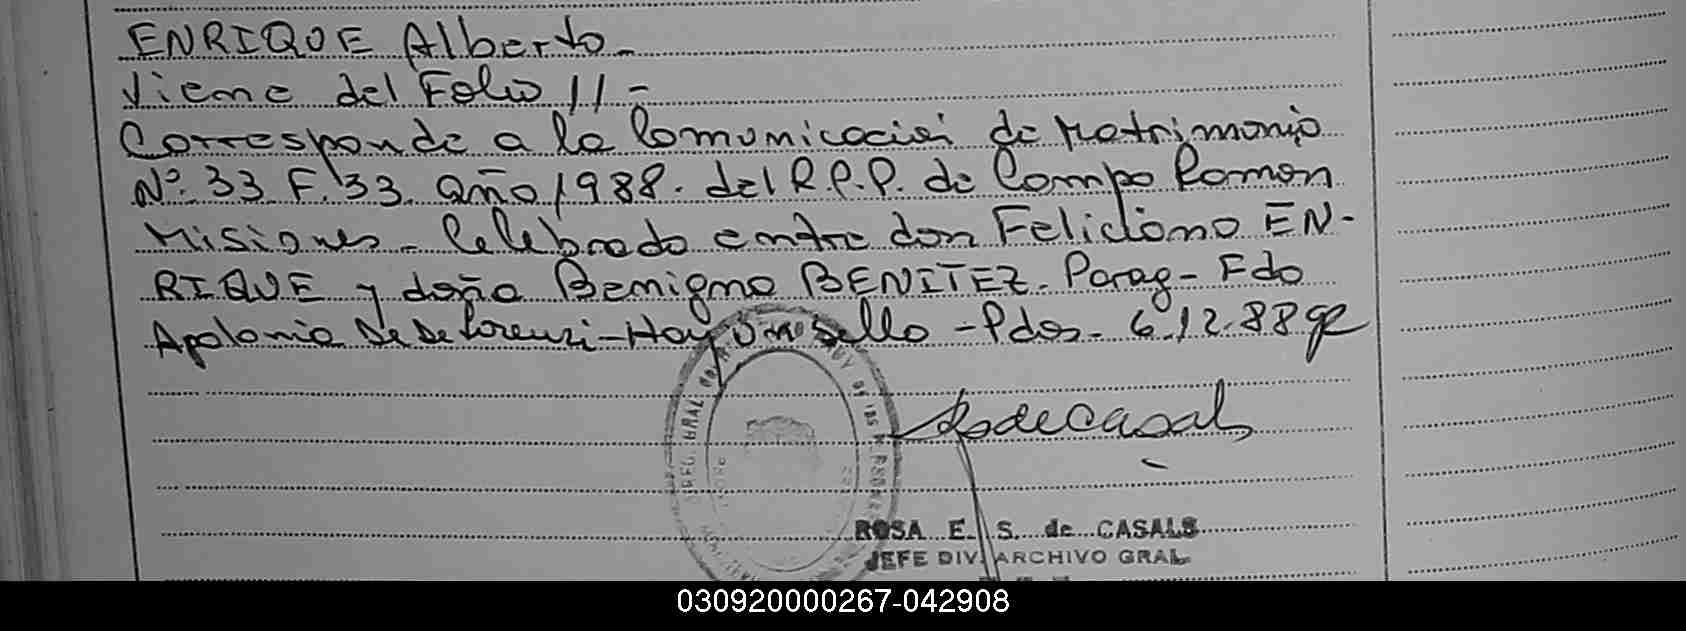 ENRIQUE Alberto-
Viene del Folio 11-
Corresponde a la Comunicación de Matrimonio
Nº. 33 F. 33. año 1988. del R.P.P. de Campo Ramon
Misiones- Celebrado entre don Feliciano EN-
RIQUE y doña Benigna BENITEZ- Parag- Fdo
Apolonia S de Lorenzi-Hay un sello -Pdos- 6.12.88
ROSA E. S. de CASALS
JEFE DIV. ARCHIVO GRAL.
030920000267-042908